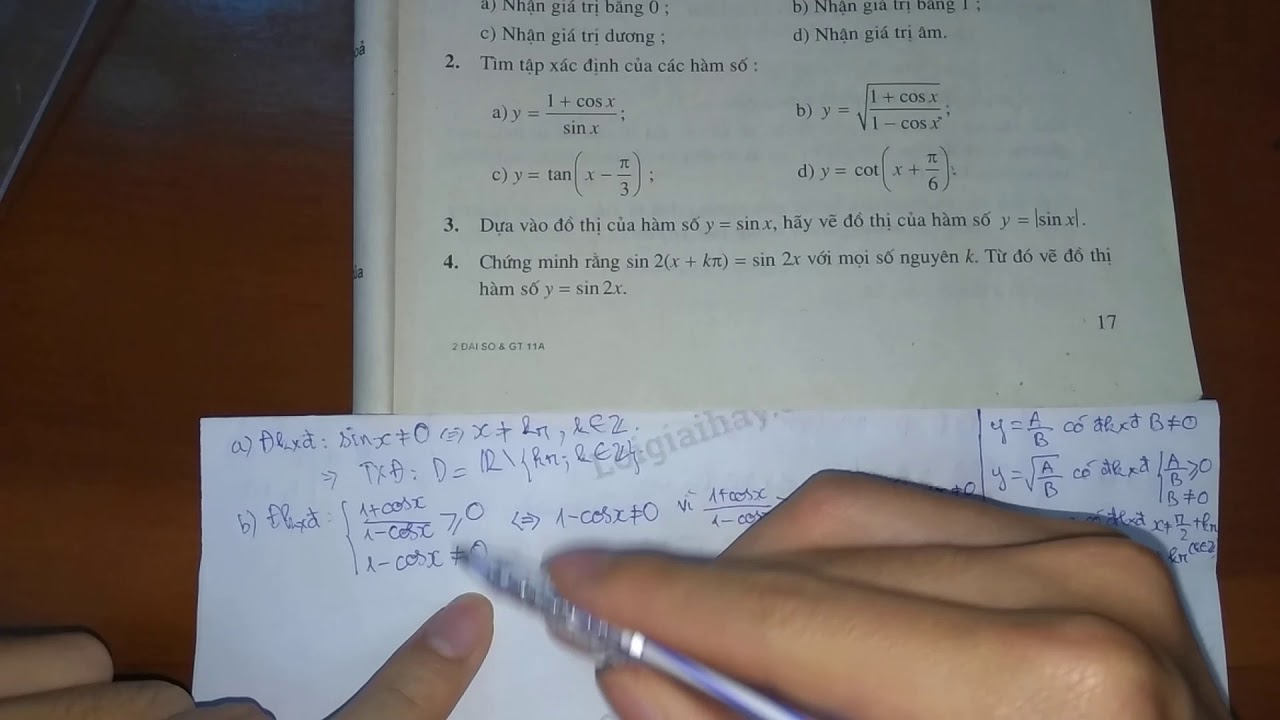 a) Nhận giá trị bằng 0 ; b) Nhận giá trị bằng 1 ;
c) Nhận giá trị dương ; d) Nhận giá trị âm.
2. Tìm tập xác định của các hàm số :
a) y = \frac{1 + cos x}{sin x} ; b) y = \sqrt{\frac{1 + cos x}{1 − cos x}} ;
c) y = tan(x − \frac{π}{3}) ; d) y = cot(x + \frac{π}{6}).
3. Dựa vào đồ thị của hàm số y = sin x, hãy vẽ đồ thị của hàm số y = |sin x|.
4. Chứng minh rằng sin 2(x + kπ) = sin 2x với mọi số nguyên k. Từ đó vẽ đồ thị
hàm số y = sin 2x.
17
2 ĐAI SO & GT 11A
a) Đkxđ : sin x ≠ 0 ⇔ x ≠ kπ , k ∈ Z.
⇒ TXĐ : D = R \ {kπ ; k ∈ Z}
b) Đkxđ : { \frac{1+cosx}{1−cosx} ⩾ 0 ⇔ 1−cosx ≠ 0 vì \frac{1+cosx}{1−cosx}
1−cosx ≠ 0
y = \frac{A}{B} có đkxđ B ≠ 0
y = \sqrt{\frac{A}{B}} có đkxđ { \frac{A}{B} ⩾ 0
B ≠ 0
đkxđ x ≠ \frac{π}{2} + kπ
kπ (k∈Z)
Loigiaihay.